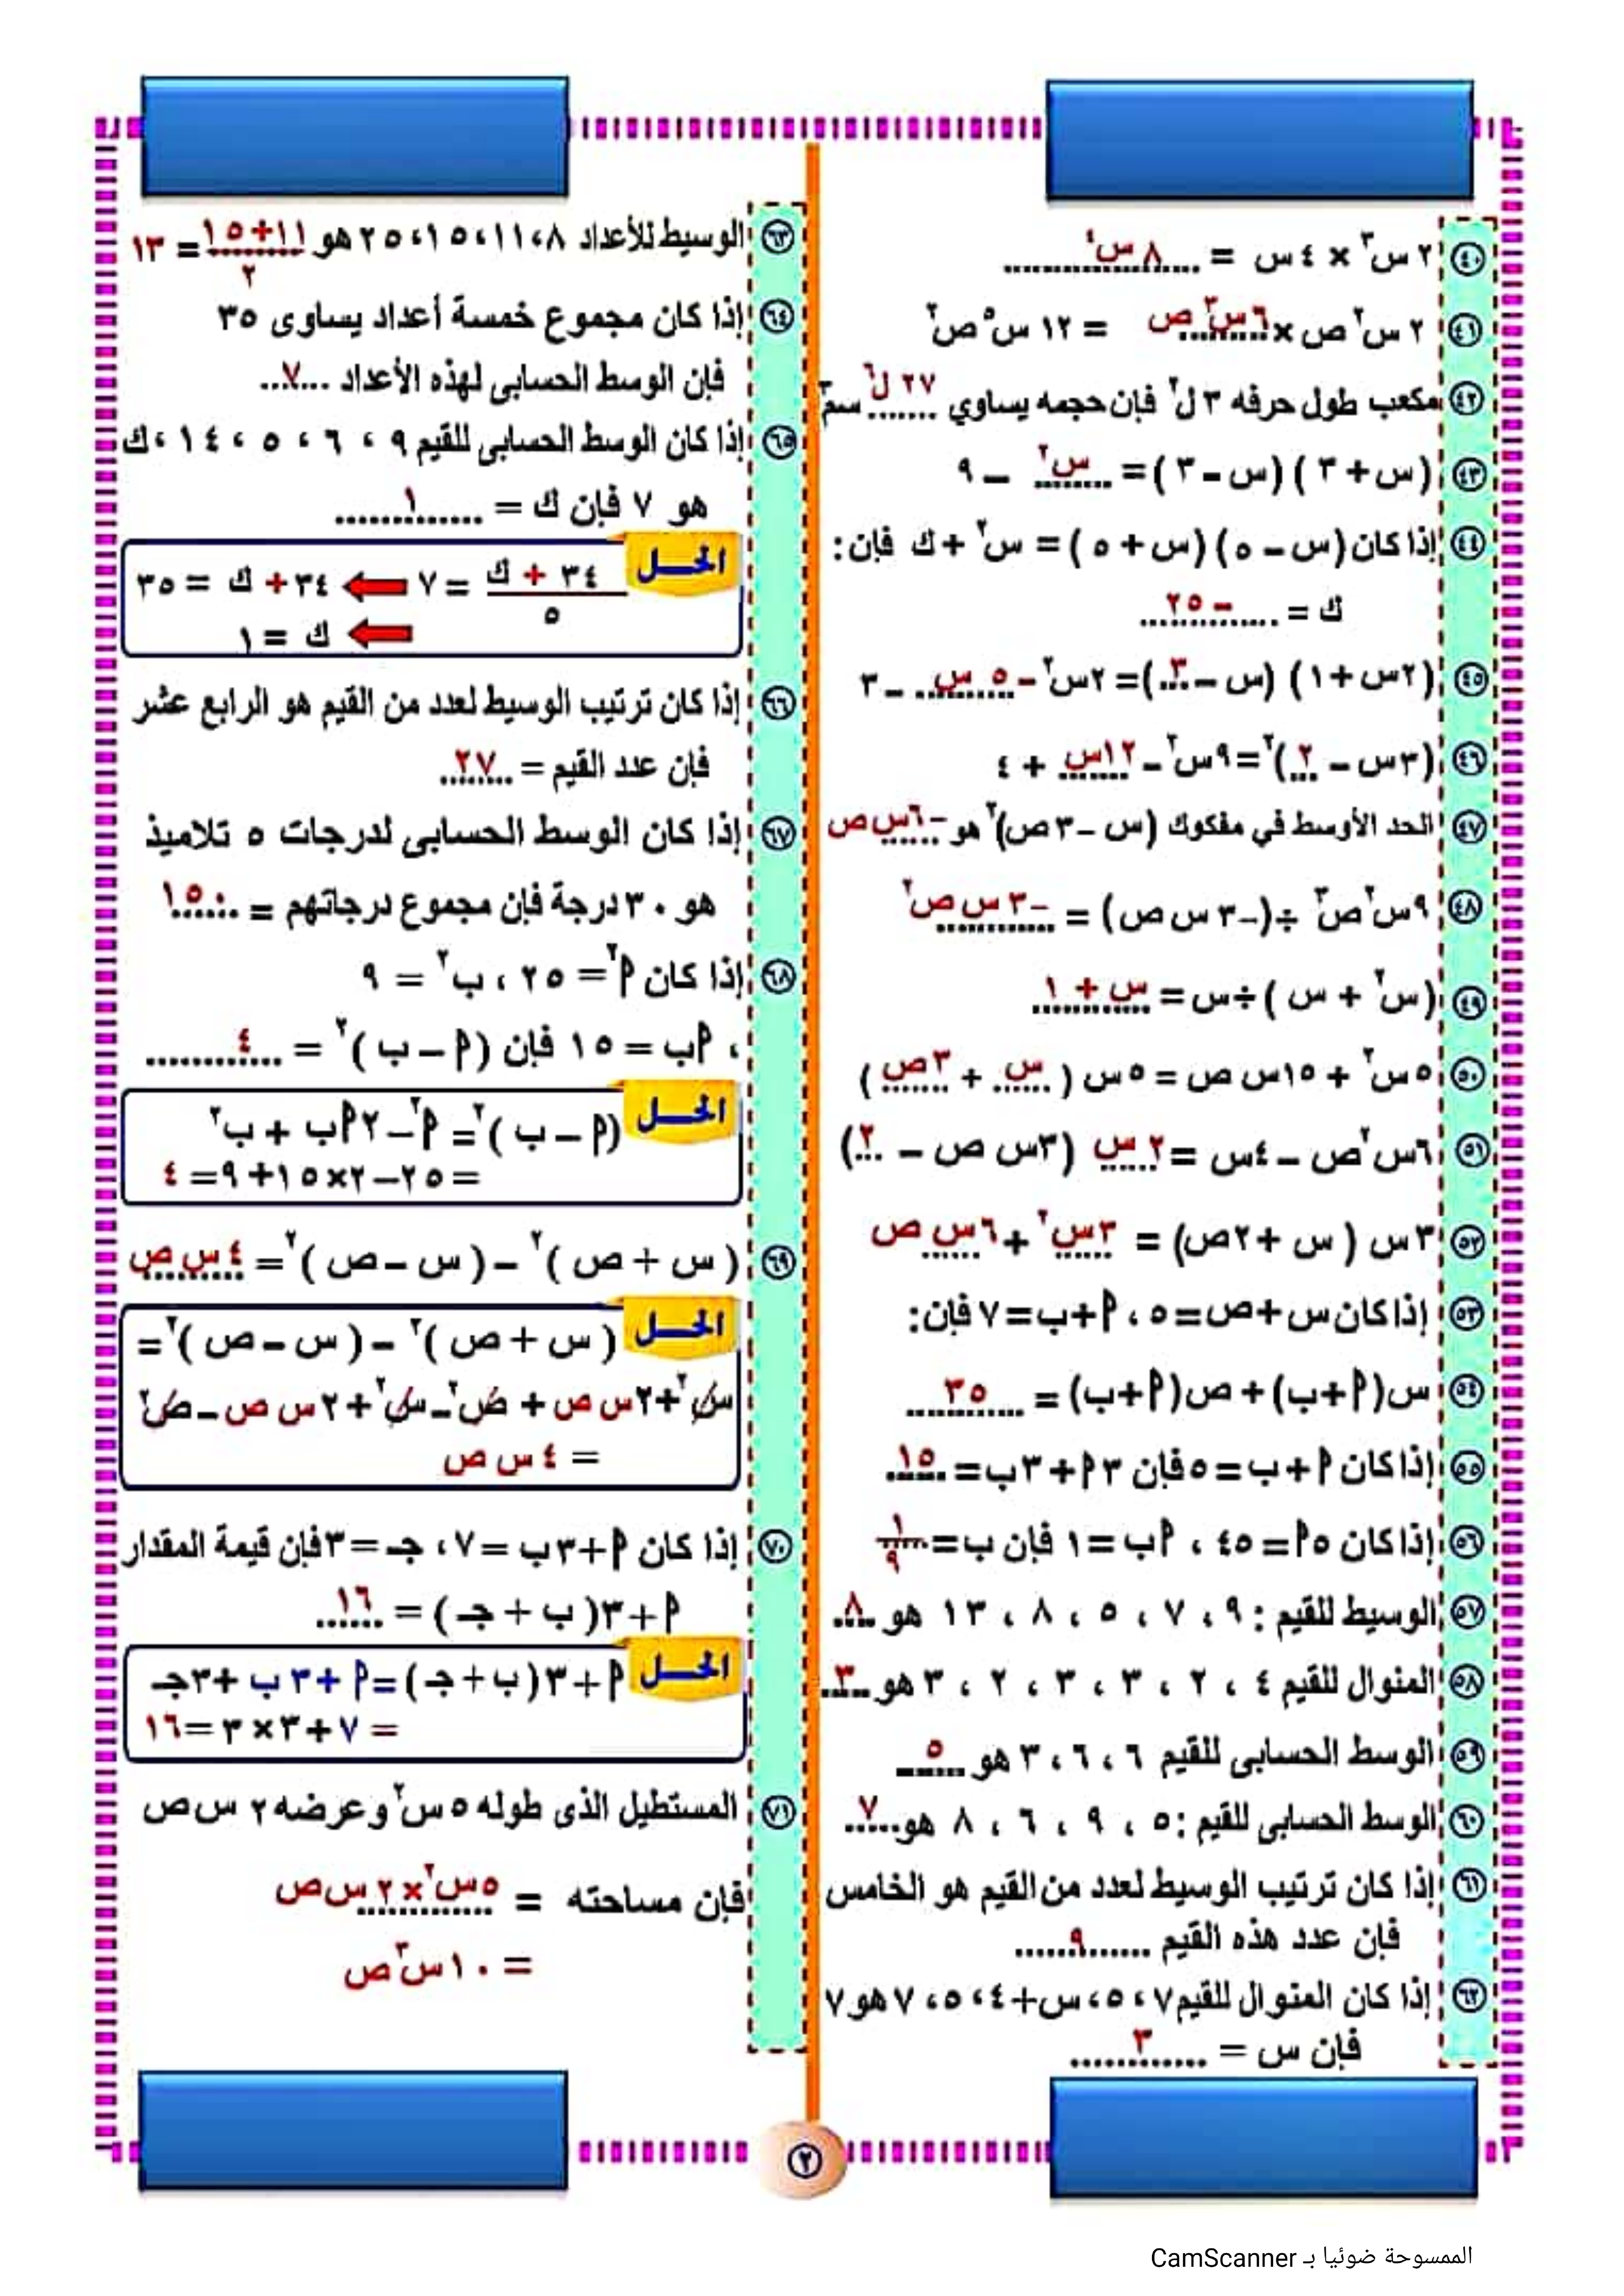 ٤٠ ٢ س٣ × ٤ س = ٨ س٤
٤١ ٢ س٢ ص × ٦ س٣ ص = ١٢ س٥ ص٢
٤٢ مكعب طول حرفه ٣ ل٢ فإن حجمه يساوي ٢٧ ل٦ سم٣
٤٣ (س + ٣) (س - ٣) = س٢ - ٩
٤٤ إذا كان (س - ٥) (س + ٥) = س٢ + ك فإن:
ك = - ٢٥
٤٥ (٢س + ١) (س - ٣) = ٢س٢ - ٥ س - ٣
٤٦ (٣س - ٢)٢ = ٩س٢ - ١٢س + ٤
٤٧ الحد الأوسط في مفكوك (س - ٣ص)٢ هو -٦س ص
٤٨ ٩س٢ص٣ ÷ (-٣ س ص) = -٣ س ص٢
٤٩ (س٢ + س) ÷ س = س + ١
٥٠ ٥س٢ + ١٥س ص = ٥س (س + ٣ص)
٥١ ٦س٢ص - ٤س = ٢ س (٣س ص - ٢)
٥٢ ٣س (س + ٢ص) = ٣س٢ + ٦س ص
٥٣ إذا كان س + ص = ٥ ، ٩ + ب = ٧ فإن:
٥٤ س(٩ + ب) + ص(٩ + ب) = ٣٥
٥٥ إذا كان ٩ + ب = ٥ فإن ٣٩ + ٣ب = ١٥
٥٦ إذا كان ٥٩ = ٤٥ ، ٩ب = ١ فإن ب = ١/٩
٥٧ الوسيط للقيم : ٩ ، ٧ ، ٥ ، ٨ ، ١٣ هو ٨
٥٨ المنوال للقيم ٤ ، ٢ ، ٣ ، ٣ ، ٢ ، ٣ هو ٣
٥٩ الوسط الحسابى للقيم ٦ ، ٦ ، ٣ هو ٥
٦٠ الوسط الحسابى للقيم : ٥ ، ٩ ، ٦ ، ٨ هو ٧
٦١ إذا كان ترتيب الوسيط لعدد من القيم هو الخامس
فإن عدد هذه القيم ٩
٦٢ إذا كان المنوال للقيم ٧ ، ٥ ، س + ٤ ، ٥ ، ٧ هو ٧
فإن س = ٣
٦٣ الوسيط للأعداد ٨ ، ١١ ، ١٥ ، ٢٥ هو ١١+١٥/٢ = ١٣
٦٤ إذا كان مجموع خمسة أعداد يساوى ٣٥
فإن الوسط الحسابى لهذه الأعداد ...٧...
٦٥ إذا كان الوسط الحسابى للقيم ٩ ، ٦ ، ٥ ، ١٤ ، ك
هو ٧ فإن ك = ١
الحـل
٣٤ + ك/٥ = ٧ ⬅ ٣٤ + ك = ٣٥
⬅ ك = ١
٦٦ إذا كان ترتيب الوسيط لعدد من القيم هو الرابع عشر
فإن عدد القيم = ٢٧
٦٧ إذا كان الوسط الحسابى لدرجات ٥ تلاميذ
هو ٣٠ درجة فإن مجموع درجاتهم = ١٥٠
٦٨ إذا كان ٩٢ = ٢٥ ، ب٢ = ٩
، ٩ب = ١٥ فإن (٩ - ب)٢ = ٤
الحـل
(٩ - ب)٢ = ٩٢ - ٢ ٩ب + ب٢
= ٢٥ - ٢×١٥ + ٩ = ٤
٦٩ (س + ص)٢ - (س - ص)٢ = ٤ س ص
الحـل
(س + ص)٢ - (س - ص)٢ =
س٢ + ٢س ص + ص٢ - س٢ + ٢ س ص - ص٢
= ٤ س ص
٧٠ إذا كان ٩ + ٣ب = ٧ ، جـ = ٣ فإن قيمة المقدار
٩ + ٣(ب + جـ) = ١٦
الحـل
٩ + ٣(ب + جـ) = ٩ + ٣ب + ٣جـ
= ٧ + ٣×٣ = ١٦
٧١ المستطيل الذى طوله ٥ س٢ وعرضه ٢ س ص
فإن مساحته = ٥س٢ × ٢ س ص
= ١٠س٣ ص
٢
الممسوحة ضوئيا بـ CamScanner